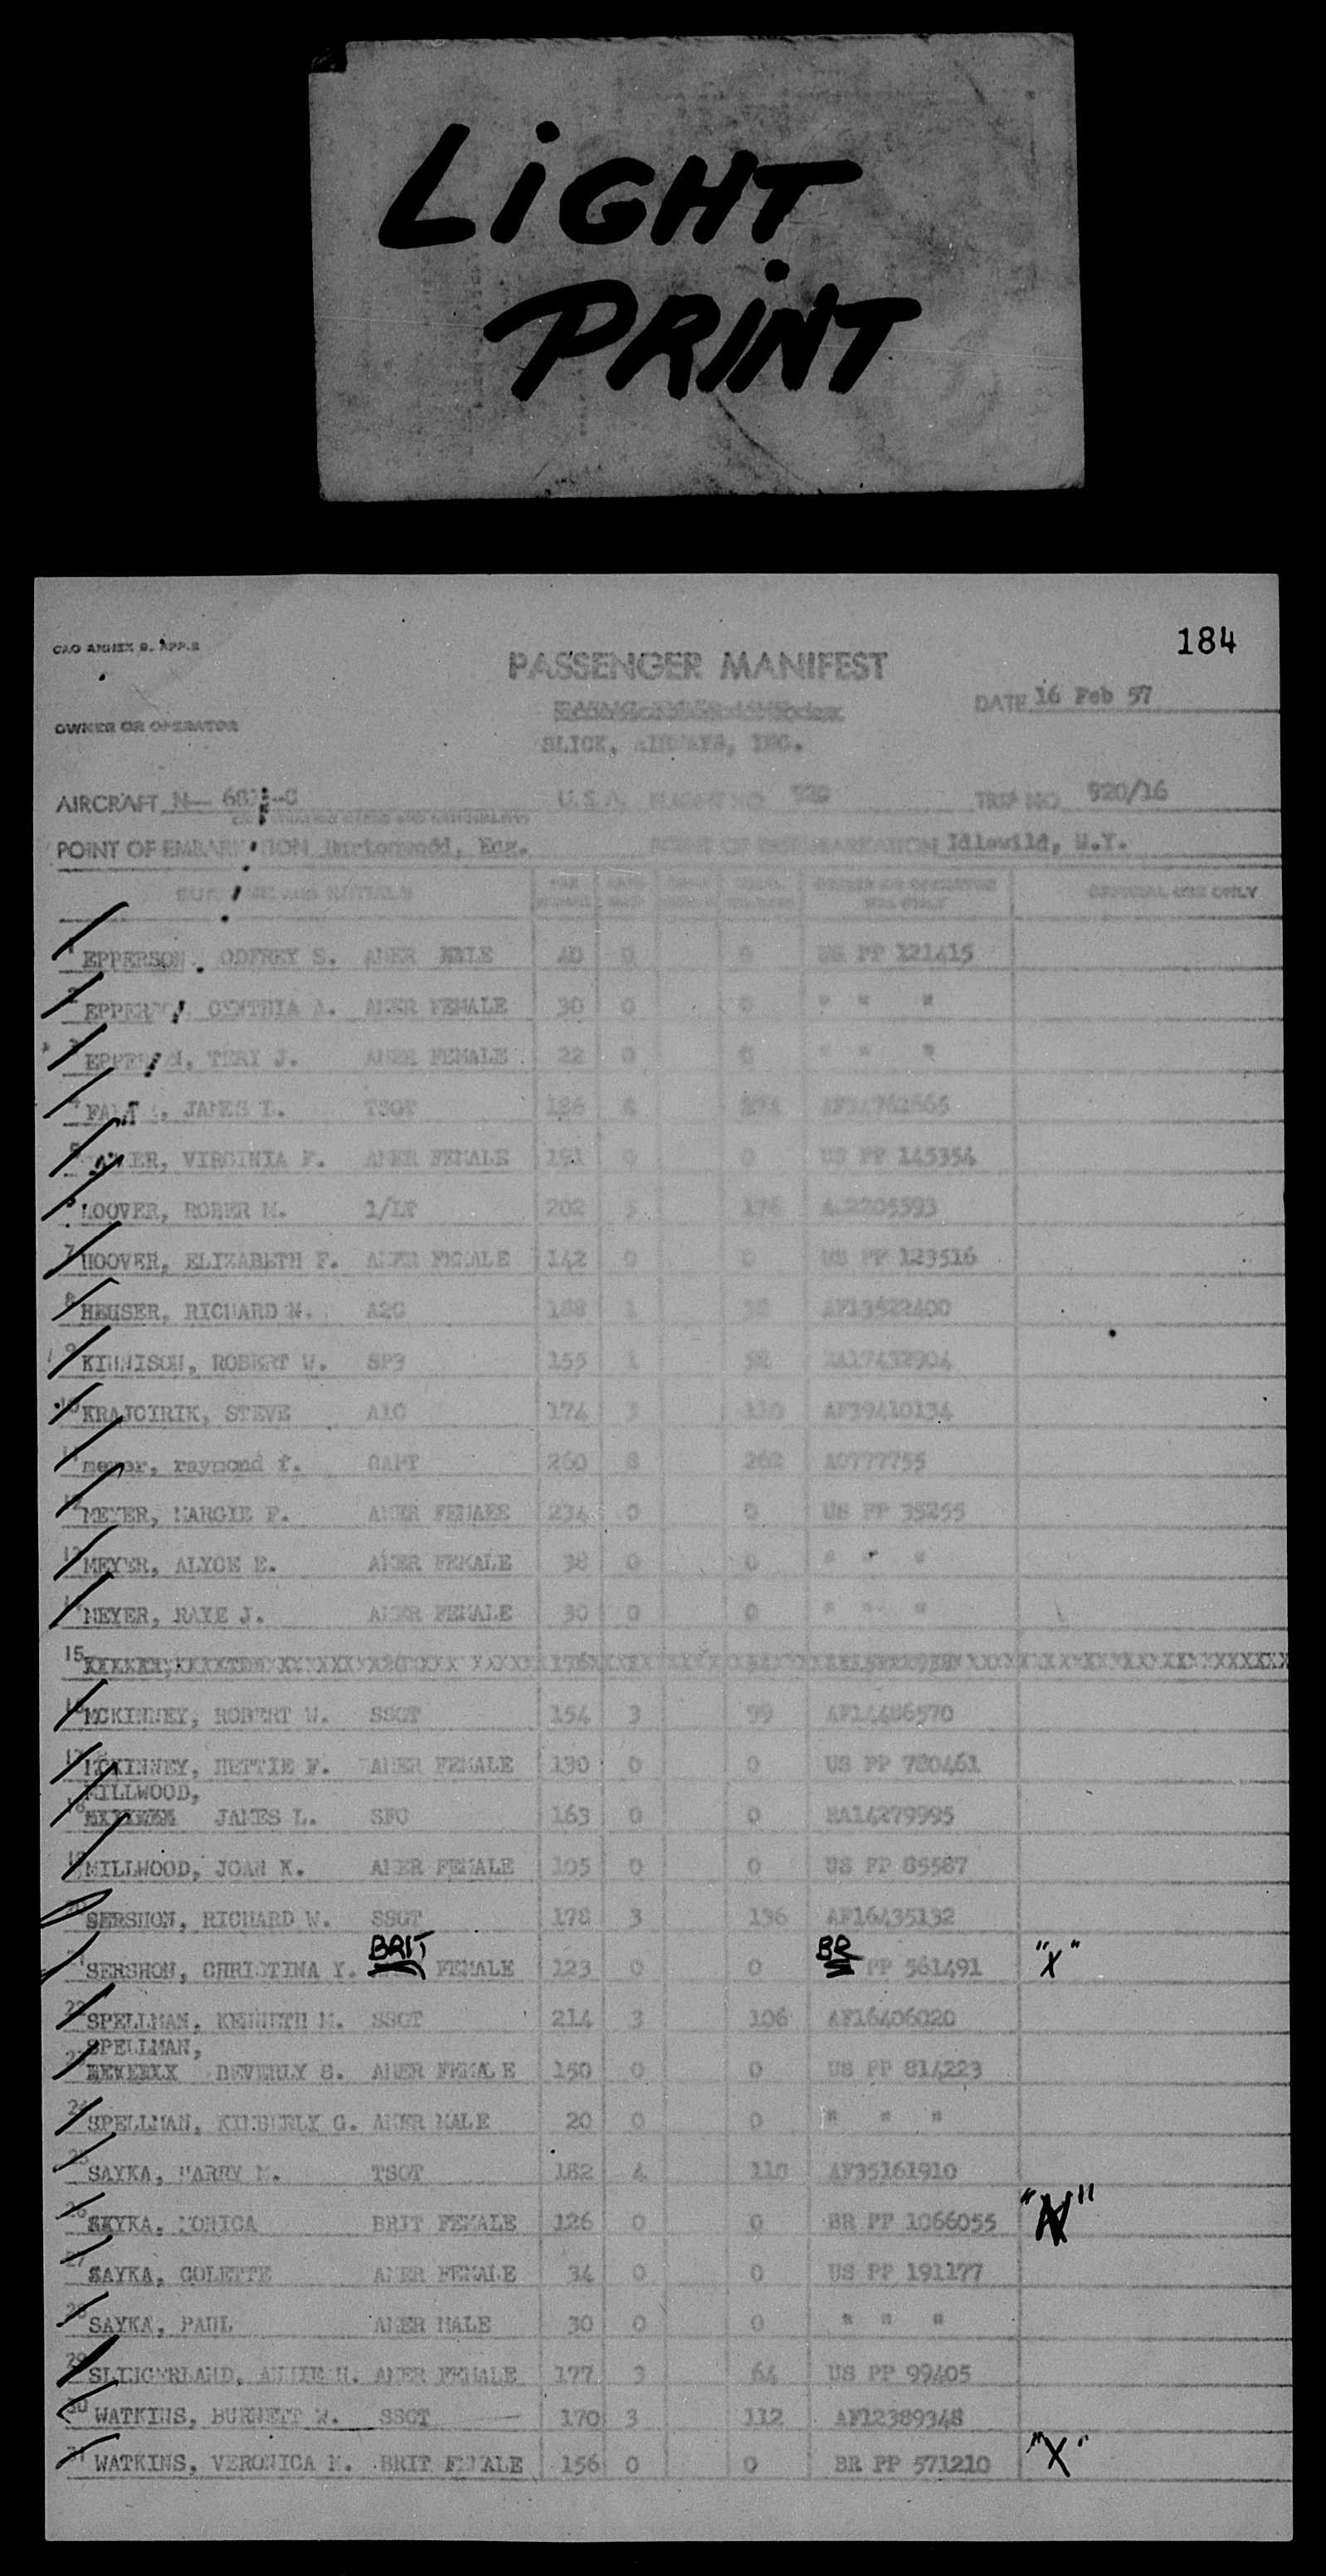 LiGHT
PRiNT
184
PASSENGER MANIFEST
DATE 16 Feb 57
OWNER OR OPERATOR
SLICK, AIRWAYS, INC.
AIRCRAFT N- U.S.A. TRIP NO. 920/16
POINT OF EMBARKATION Burtonwood, Eng. POINT OF DISEMBARKATION Idlewild, N.Y.
OFFICIAL USE ONLY
1 EPPERSON, ODFREY S. AMER MALE 40 0 0 US PP 121415
2 CYNTHIA A. AMER FEMALE 30 0 0 " " "
3 TERI J. AMER FEMALE 22 0 0 " " "
4 JAMES L. TSGT
5 VIRGINIA F. AMER FEMALE 191 0 0 US PP 145354
HOOVER, ROBER M. 1/LT 202 5 176
7 HOOVER, ELIZABETH F. AMER FEMALE 142 0 0 US PP 123516
8 HEUSER, RICHARD W. A2C 188 1 AF13522400
9 KINNISON, ROBERT W. SP3 155 1 RA17432904
10 KRAJCIRIK, STEVE A1C 174 3 110 AF39410134
11 meyer, raymond f. CAPT 260 8 262 AO777755
12 MEYER, MARGIE F. AMER FEMALE 234 0 0 US PP 35255
13 MEYER, ALYCE E. AMER FEMALE 38 0 0 " " "
MEYER, RAYE J. AMER FEMALE 30 0 0 " " "
15
16 MCKINNEY, ROBERT W. SSGT 154 3 99 AF14486570
17 MCKINNEY, HETTIE F. AMER FEMALE 130 0 0 US PP 780461
MILLWOOD,
18 JAMES L. SFC 163 0 0 RA14279995
19 MILLWOOD, JOAN K. AMER FEMALE 105 0 0 US PP 85587
20 SERSHON, RICHARD W. SSGT 178 3 136 AF16435132
21 SERSHON, CHRISTINA Y. BRIT FEMALE 123 0 0 BR PP 561491 "X"
22 SPELLMAN, KENNETH M. SSGT 214 3 106 AF16406020
SPELLMAN,
23 BEVERLY S. AMER FEMALE 150 0 0 US PP 814223
24 SPELLMAN, KIMBERLY G. AMER MALE 20 0 0 " " "
25 SAYKA, HARRY M. TSGT 182 4 110 AF35161910
26 SAYKA, MONICA BRIT FEMALE 126 0 0 BR PP 1066055 "N"
27 SAYKA, COLETTE AMER FEMALE 34 0 0 US PP 191177
28 SAYKA, PAUL AMER MALE 30 0 0 " " "
29 SLINGERLAND, ANNIE H. AMER FEMALE 177 3 64 US PP 99405
30 WATKINS, BURNETT W. SSGT 170 3 112 AF12389348
31 WATKINS, VERONICA M. BRIT FEMALE 156 0 0 BR PP 571210 "X"